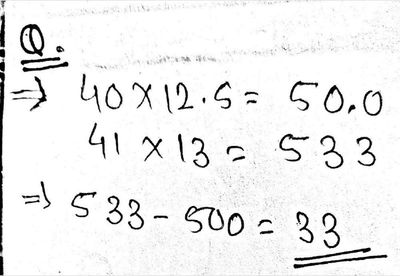 Q.
⇒ 40 × 12.5 = 50.0
41 × 13 = 533
⇒ 533 - 500 = 33